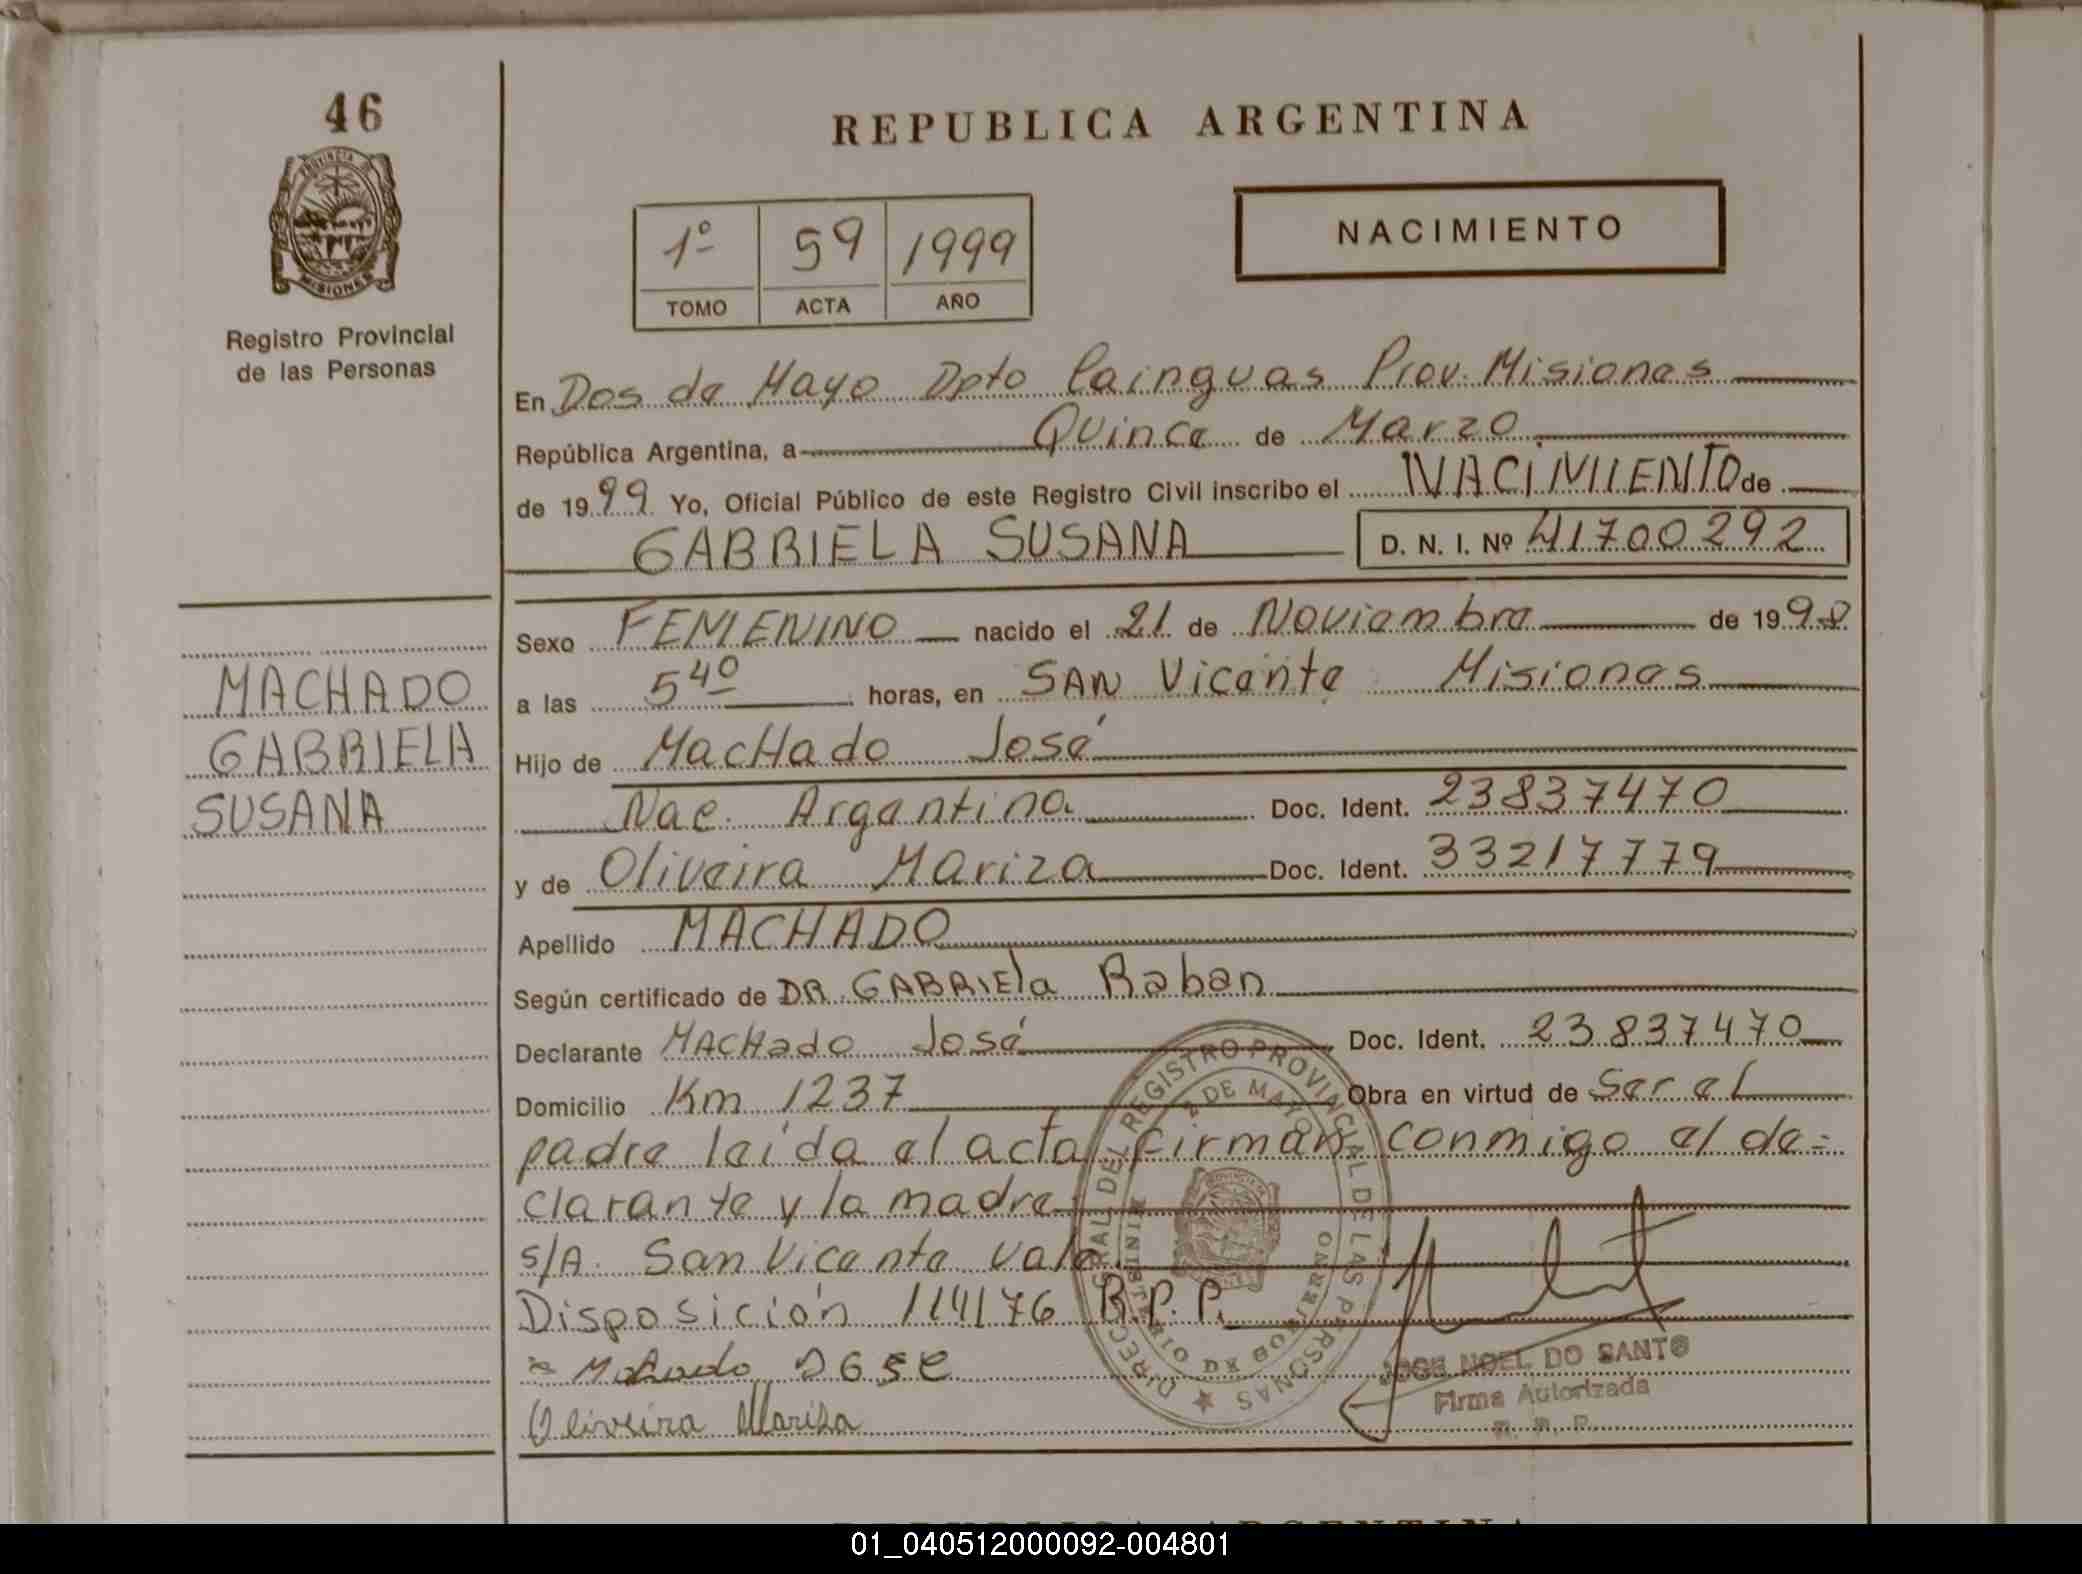 46
PROVINCIA DE
MISIONES
Registro Provincial
de las Personas
MACHADO
GABRIELA
SUSANA
REPUBLICA ARGENTINA
1º 59 1999
TOMO ACTA AÑO
NACIMIENTO
En Dos de Mayo Dpto Cainguas Prov. Misiones
República Argentina, a Quince de Marzo
de 1999 Yo, Oficial Público de este Registro Civil inscribo el NACIMIENTO de
GABRIELA SUSANA D. N. I. Nº 41700292
Sexo FEMENINO nacido el 21 de Noviembre de 1998
a las 5 40 horas, en SAN Vicente Misiones
Hijo de MacHado José
Nac. Argentina Doc. Ident. 23837470
y de Oliveira Mariza Doc. Ident. 33217779
Apellido MACHADO
Según certificado de DR. GABRIEla Raban
Declarante MACHado José Doc. Ident. 23837470
Domicilio Km 1237 Obra en virtud de Ser el
padre leída el acta firman conmigo el de=
clarante y la madre
s/A. San Vicente Vale
Disposición 114176 R.P.P.
Oliveira Mariza
DIRECC. GRAL DEL REGISTRO PROVINCIAL DE LAS PERSONAS
2 DE MAYO
MINISTERIO DE GOBIERNO
JOSE NOEL DO SANTO
Firma Autorizada
R. P. P.
REPUBLICA ARGENTINA
01_040512000092-004801